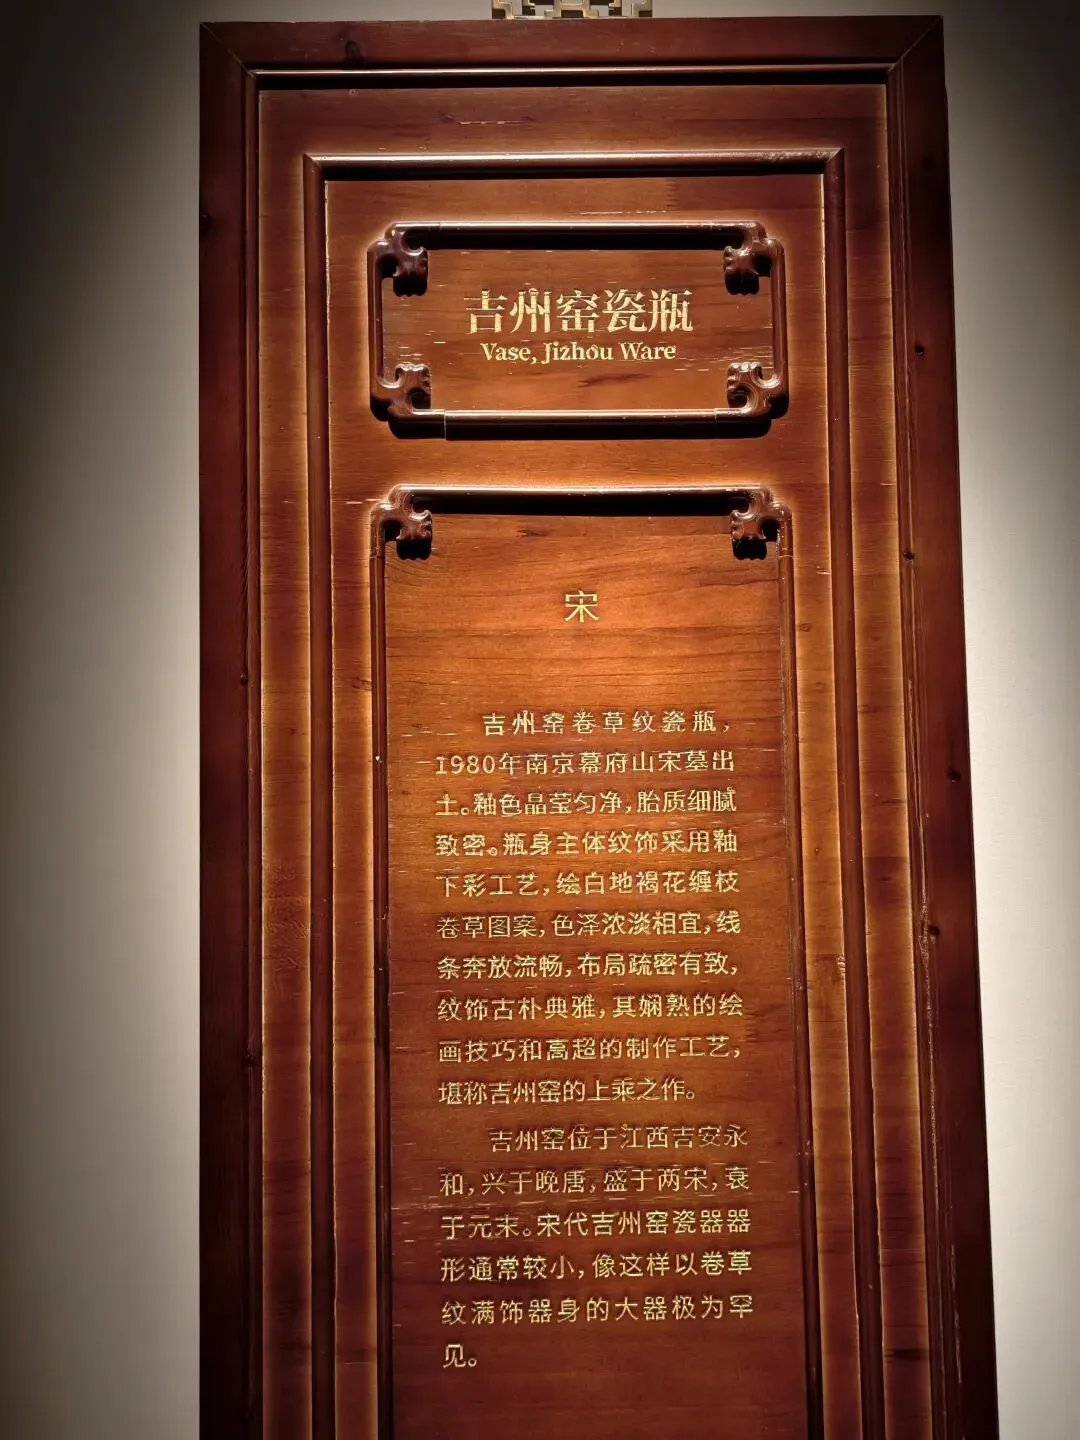 吉州窑瓷瓶
Vase, Jizhou Ware
宋
吉州窑卷草纹瓷瓶，
1980年南京幕府山宋墓出
土。釉色晶莹匀净，胎质细腻
致密。瓶身主体纹饰采用釉
下彩工艺，绘白地褐花缠枝
卷草图案，色泽浓淡相宜，线
条奔放流畅，布局疏密有致，
纹饰古朴典雅，其娴熟的绘
画技巧和高超的制作工艺，
堪称吉州窑的上乘之作。
吉州窑位于江西吉安永
和，兴于晚唐，盛于两宋，衰
于元末。宋代吉州窑瓷器器
形通常较小，像这样以卷草
纹满饰器身的大器极为罕
见。